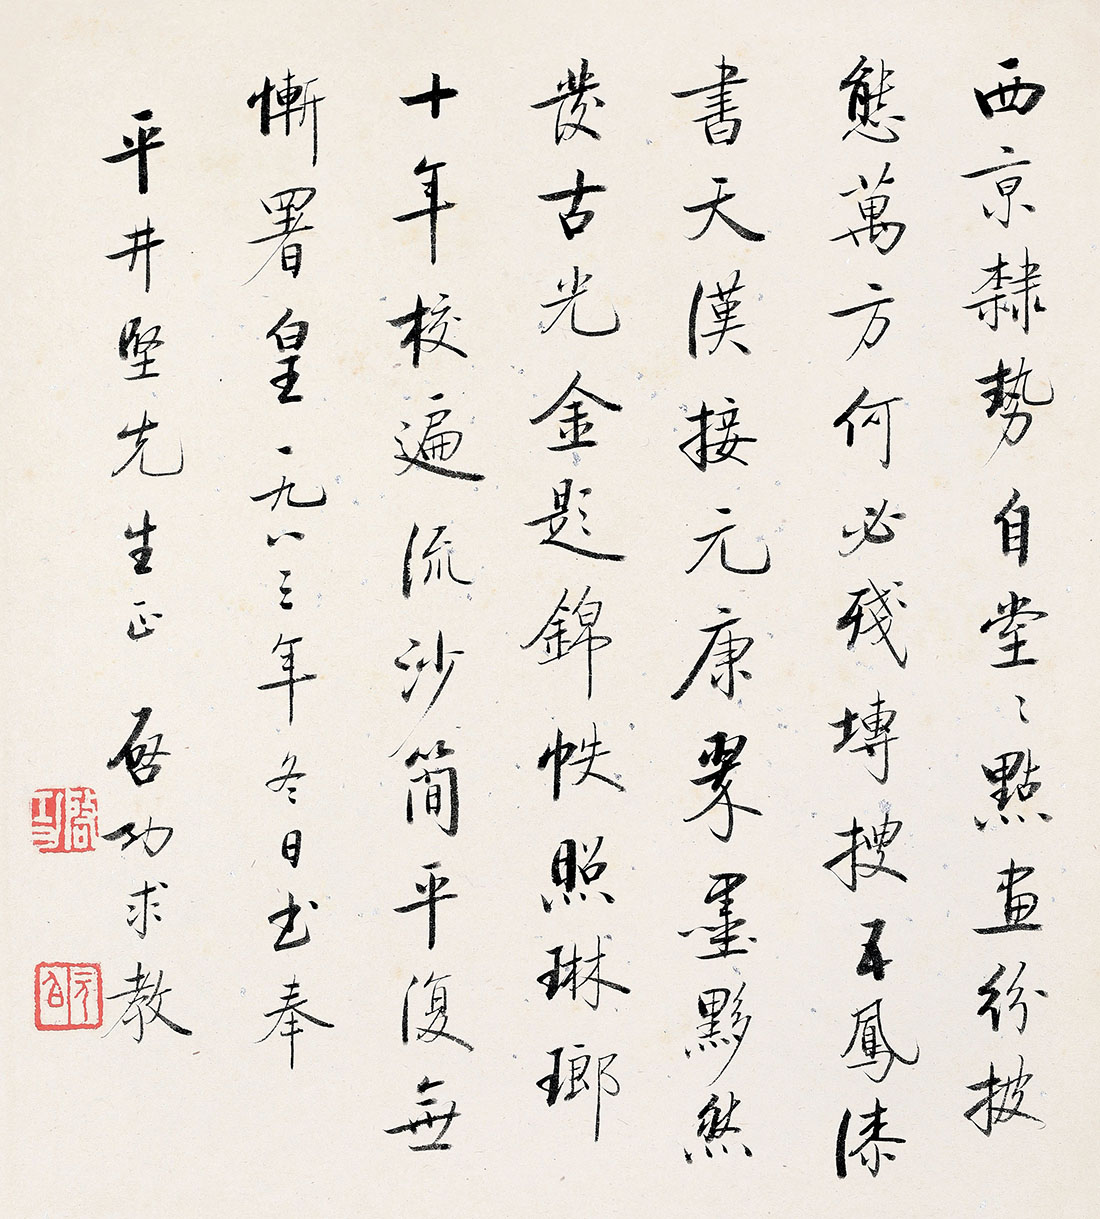 西京隸勢自堂〻點畫紛披
態萬方何必殘塼搜五鳳漆
書天漢接元康翠墨黟然
發古光金題錦帙照琳瑯
十年校遍流沙簡平復無
慚署皇一九八三年冬日书奉
平井堅先生正 啓功求教
啓功
元白